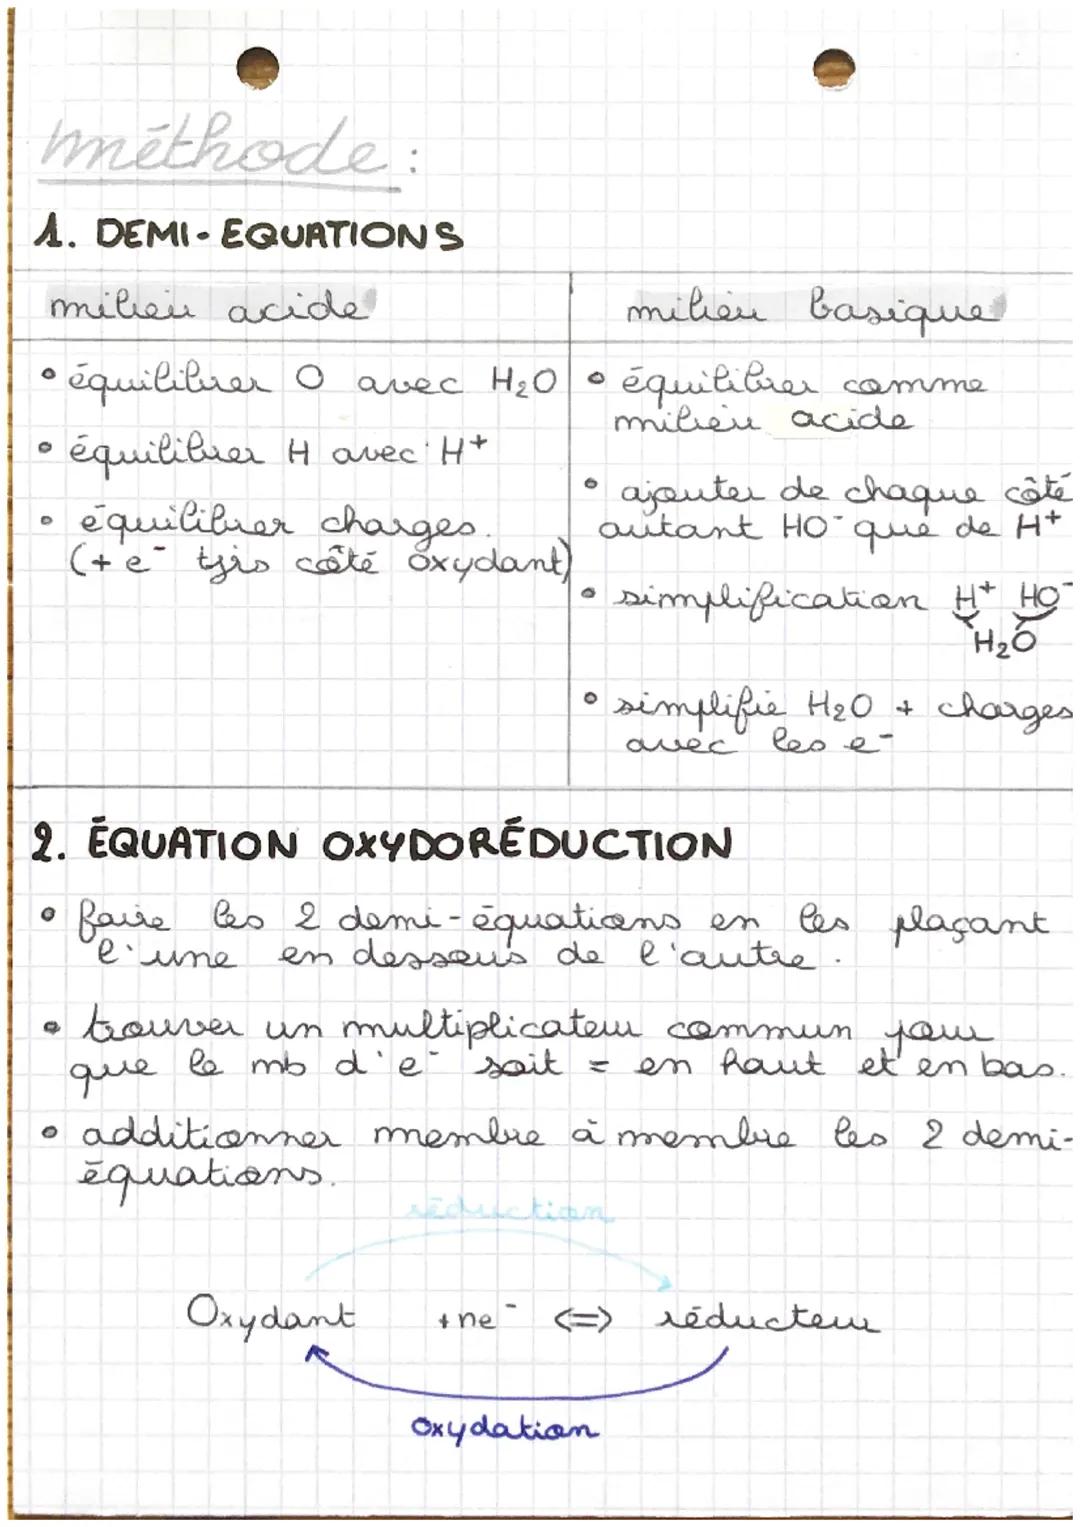 méthode :
1. DEMI-EQUATIONS
milieu acide
• équilibrer O avec H₂O
• équilibrer H avec H⁺
• équilibrer charges.
(+ e⁻ tjrs côté oxydant)
milieu basique
• équilibrer comme
milieu acide
• ajouter de chaque côté
autant HO⁻ que de H⁺
• simplification H⁺ HO⁻
H₂O
• simplifie H₂O + charges
avec les e⁻
2. ÉQUATION OXYDORÉDUCTION
• faire les 2 demi-équations en les plaçant
l'une en dessous de l'autre.
• trouver un multiplicateur commun pour
que le nb d'e⁻ soit = en haut et en bas.
• additionner membre à membre les 2 demi-
équations.
réduction
Oxydant +ne⁻ <=> réducteur
oxydation